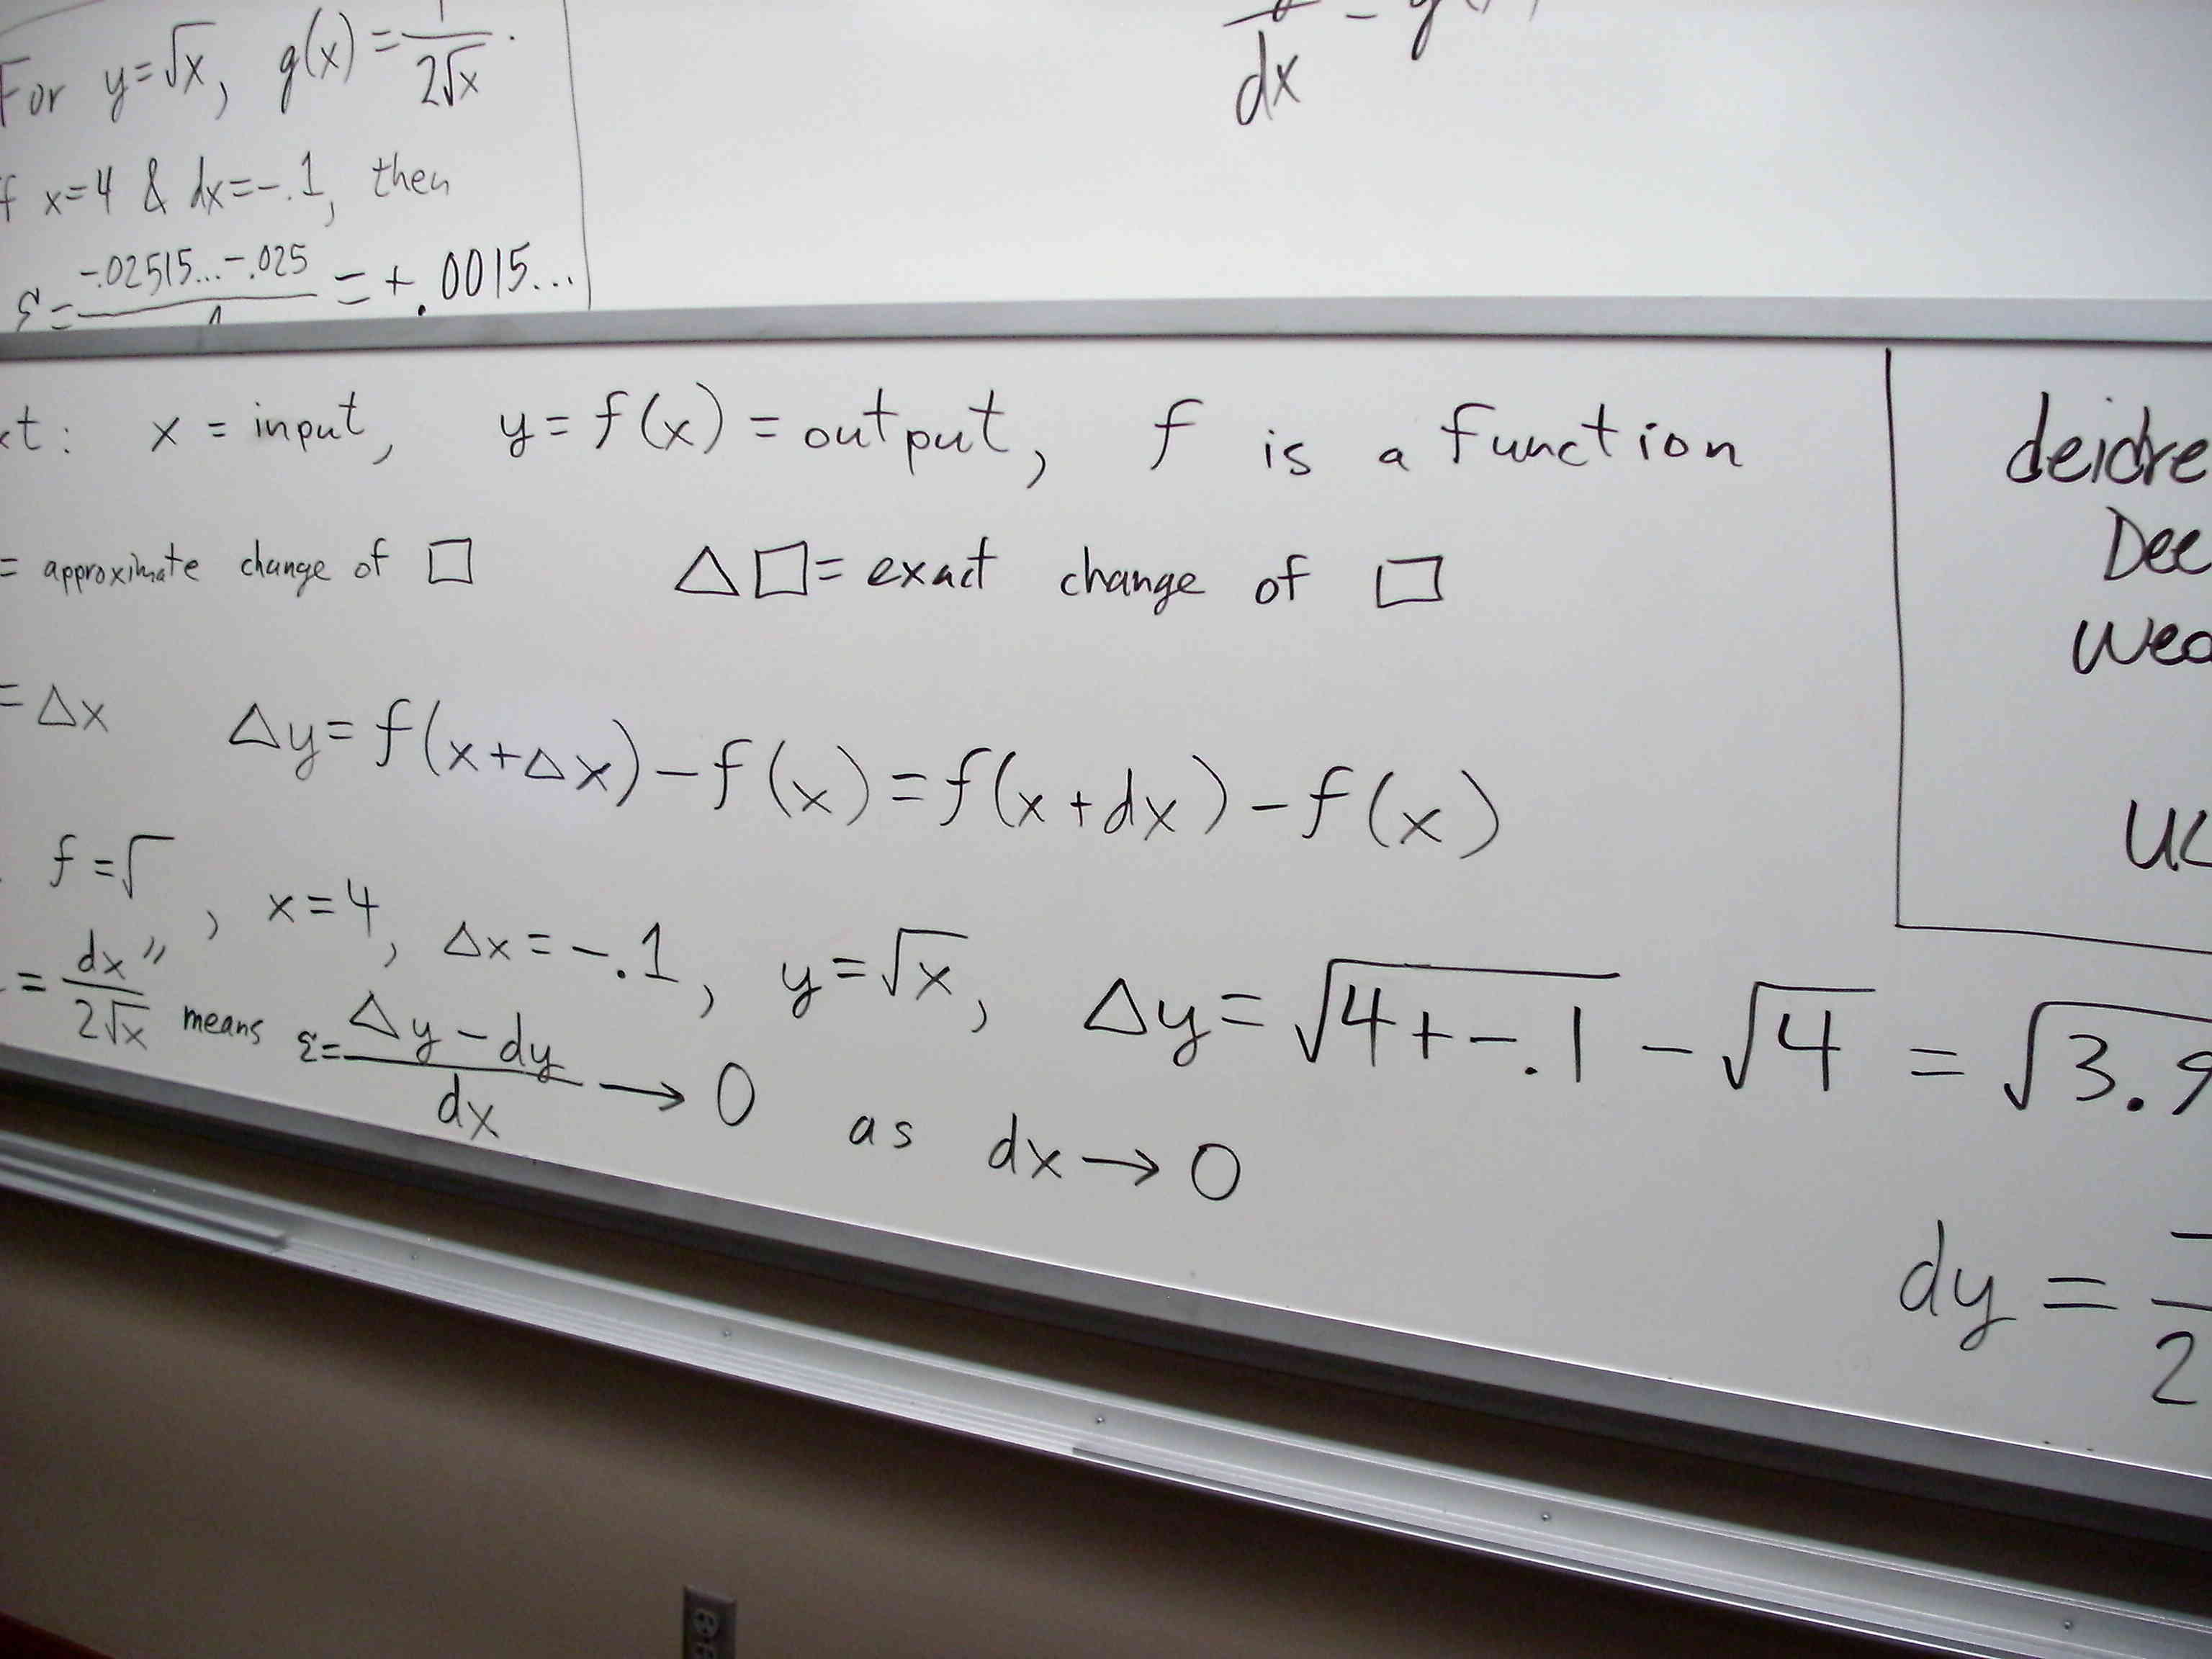 For y=√x, g(x)=1/(2√x).
x=4 & dx=-.1, then
ε = (-.02515...-.025)/ = +.0015...
dx
x = input, y = f(x) = output, f is a function
= approximate change of □ △□ = exact change of □
= Δx Δy = f(x+Δx) - f(x) = f(x+dx) - f(x)
f = √ , x=4, Δx=-.1, y=√x, Δy = √(4+-.1) - √4 = √3.9
= dx/(2√x)" means ε = (Δy-dy)/dx → 0 as dx → 0
dy =
2
deidre
Dee